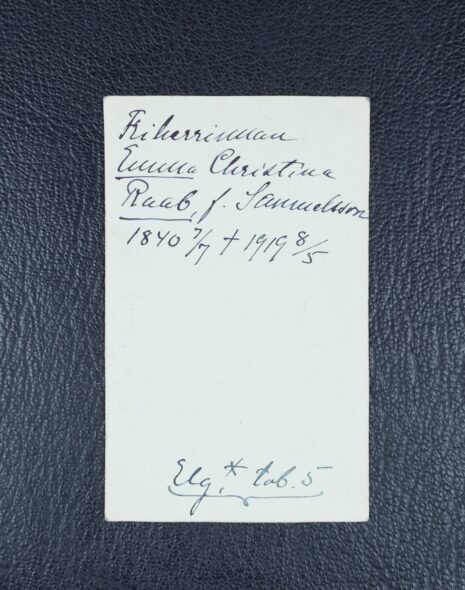 Friherrinnan
Emma Christina
Raab, f. Samuelsson
1840 7/7 † 1919 8/5
Elg. * tab. 5